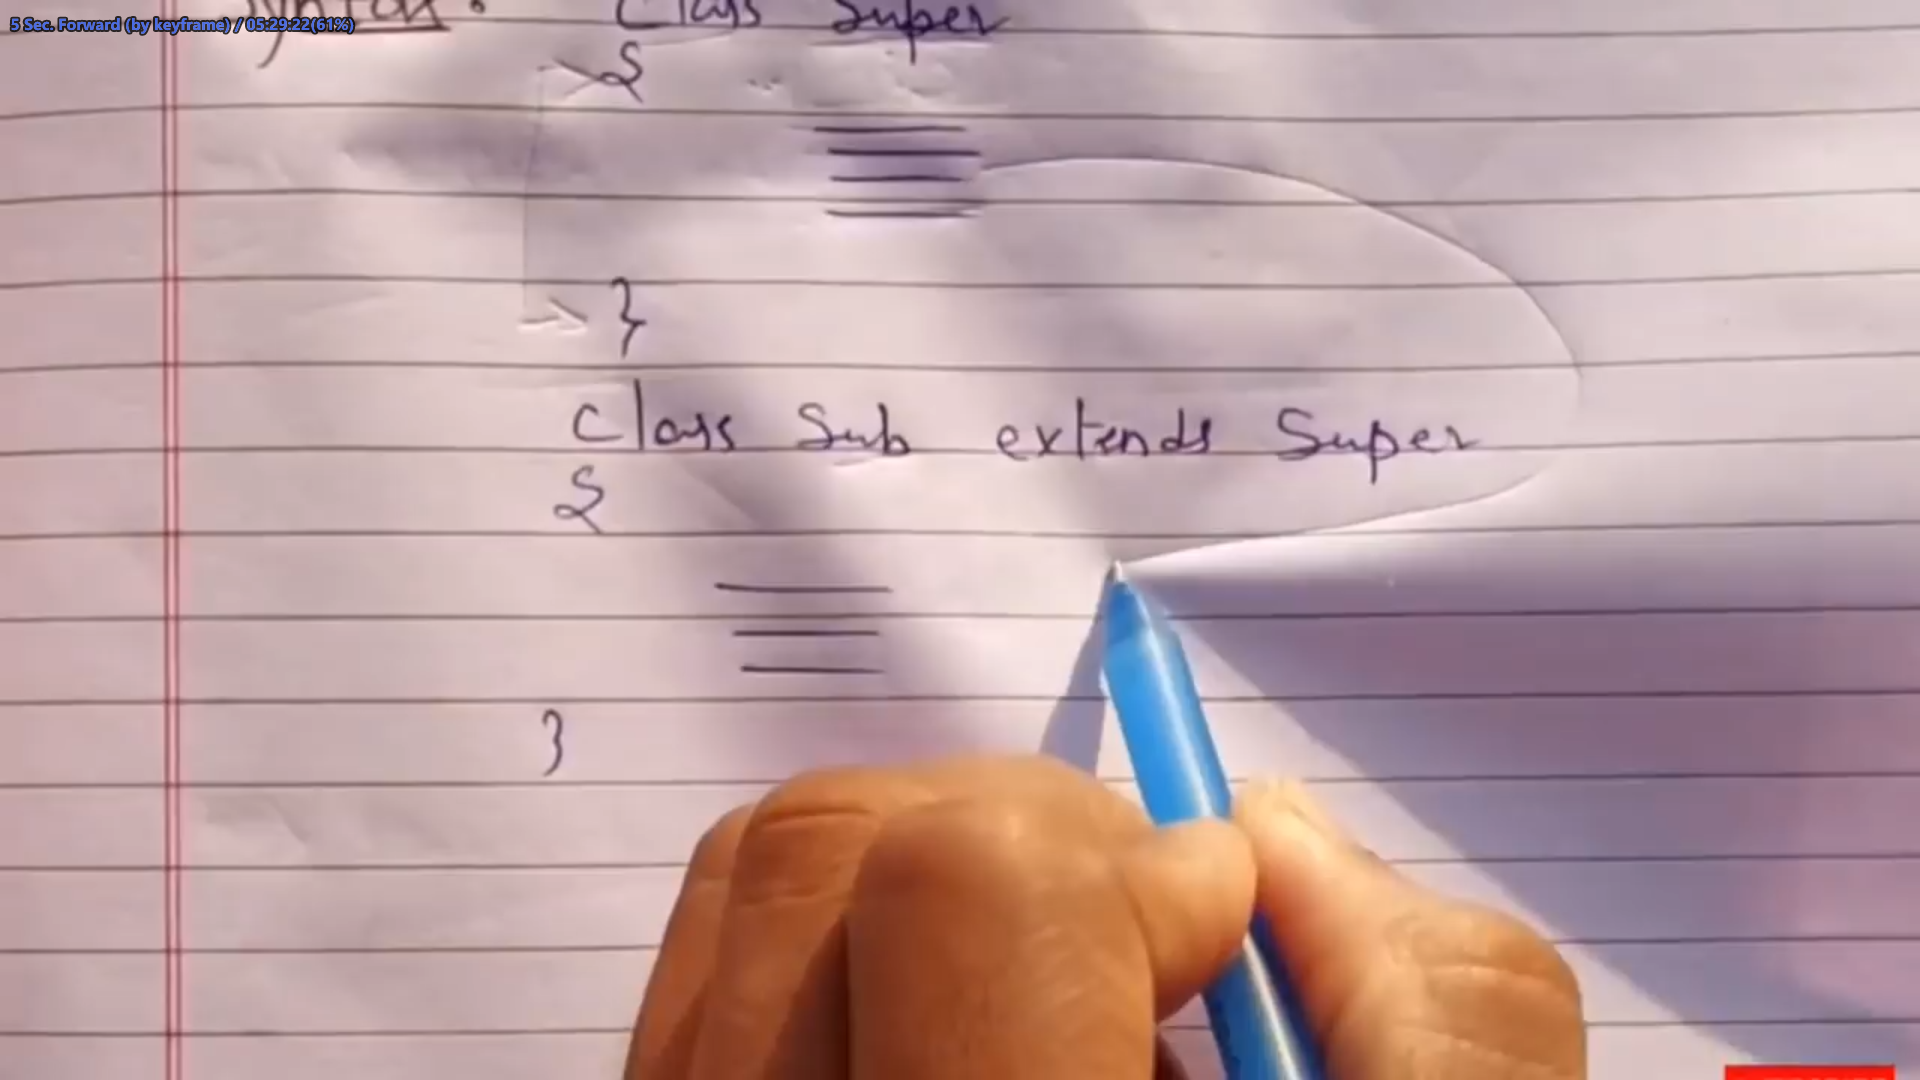 5 Sec. Forward (by keyframe) / 05:29:22(61%)
Syntax: Class Super
{
}
Class Sub extends Super
{
}